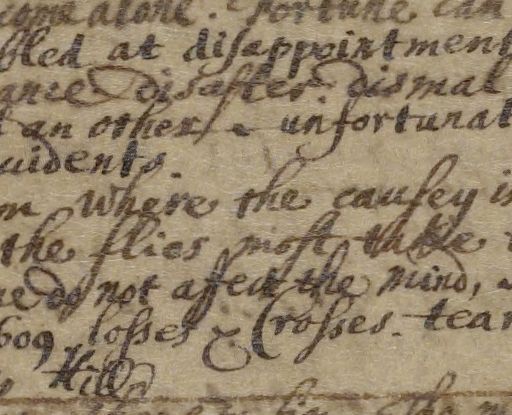 come alone. Fortune can
bled at disappointment
ance disaster dismal
an other & unfortunat
cidents
where the causey i
the flies most take
do not affect the mind,
609 losses & Crosses. tear
Hill